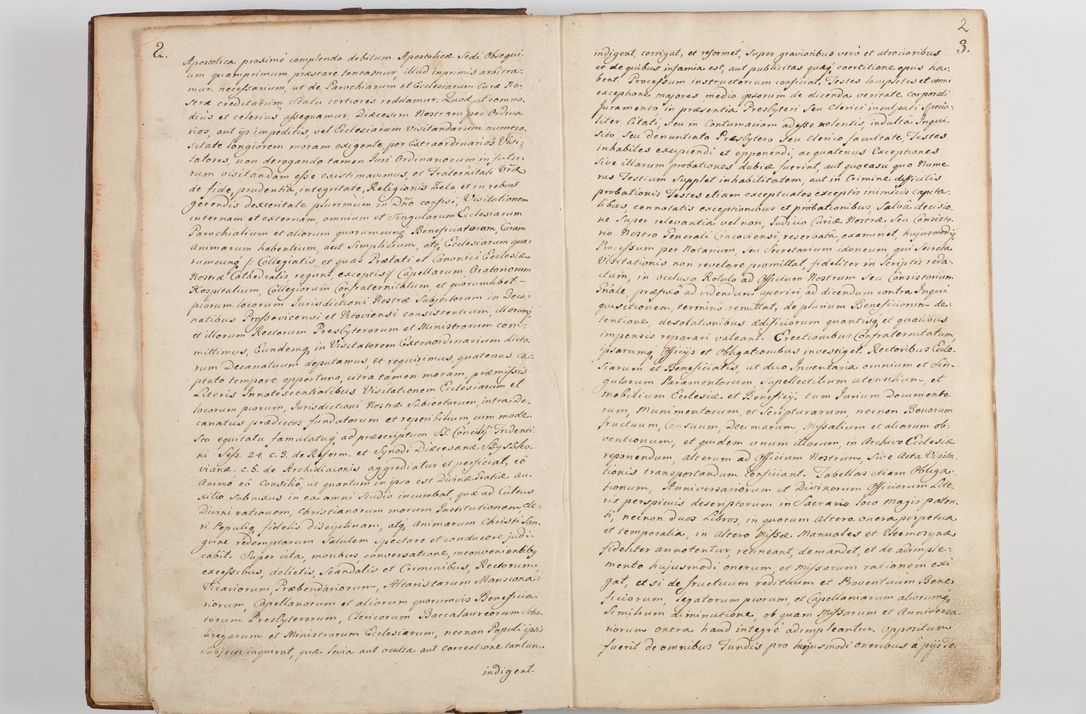 2.
Apostolica proximé complendo debitum Apostolicæ Sedi Obsequi-
um quamprimum præstare teneamur, illud inprimis arbitra-
mur necessarium, ut de Parochiarum et Ecclesiarum Curæ No-
stræ creditarum Statu certiores reddamur. Quod ut commo-
dius et celerius assequamur, Diæcesim Nostram per Ordina-
rios, aut ijs impeditis, vel Ecclesiarum Visitandarum numero-
sitate longiorem moram exigente, per Extraordinarios Visi-
tatores non derogando tamen Juri Ordinariorum in futu-
rum visitandam esse censuimus, et Fraternitati Vræ
de fide, prudentia, integritate, Religionis Zelo, et in rebus
gerendis dexteritate plurimum in Dño confisi, Visitationem
internam et externam omnium et Singularum Ecclesiarum
Parochialium et aliorum quorumcunq; Beneficiatorum Curam
Animarum habentium, aut Simplicium, atq; Ecclesiarum qua-
rumcunq; Collegiatis, et quas Prælati et Canonici Ecclesiæ
Nostræ Cathedralis regunt, exceptis, Capellarum, Oratoriorum
Hospitalium, Collegiorum Confraternitatum, et quorumlibet
piorum locorum Jurisdictioni Nostræ Subjectorum in Deca-
natibus Proszovicensi et Witoviensi consistentium, illorumq;
et illorum Rectorum Presbyterorum et Ministrorum com-
mittimus, Eundemq; in Visitatorem Extraordinarium dicto-
rum Decanatuum deputamus, et requirimus, quatenus ca-
ptato tempore opportuno, citra tamen moram, præmissis
Literis Innotescentialibus Visitationem Ecclesiarum et
locorum piorum, Jurisdictioni Nostræ Subiectorum, intra De-
canatus prædictos fundatorum et reperibilium cum mode-
sto equitatu famulatuq; ad præscriptum S. Concilij Tridenti-
ni Sess. 24. c. 3. de Reform. et Synodi Diæcesanæ Szyszko-
vianæ. c. 5. de Archidiaconis aggrediatur et perficiat, eò
Animo eo Consilio, ut quantum in ipso est Divinæ gratiæ au-
xilio Subnixus in ea omni Studio incumbat, quæ ad Cultus
Divini rationem, Christianorum morum Institutionem, Cle-
ri Populiq; fidelis disciplinam, atq; Animarum Christi San-
guine redemptarum Salutem Spectare et conducere judi-
cabit. Super vita, moribus conversatione, inconvenientibus
excessibus, delictis, Scandalis et Criminibus, Rectorum,
Vicariorum, Præbendariorum, Altaristarum Mansiona-
riorum, Capellanorum et aliorum quorumvis Beneficia-
torum Presbyterorum, Clericorum Baccalaureorum Scho-
larum et Ministrorum Ecclesiarum, necnon Populi ipsis
Subjecti inquirat, quæ levia aut occulta aut correctione tantum
indigent.
2
3.
indigent, corrigat, et reformet, Super gravioribus verò et atrocioribus
et de quibus infamia est, aut publicitas quæq; coertitione opus ha-
bent Processum instructorium conficiat, Testes locupletes et omni
exceptione majores medio ipsorum de dicenda veritate corporali
Juramento in præsentia Presbyteri Seu Clerici inculpati Specia-
liter Citati, Seu in Contumaciam adesse nolentis, indulta Inqui-
sito Seu denuntiato Præsbytero Seu Clerico facultate, Testes
inhabiles excipiendi et opponendi, ac quatenus Exceptiones
Sive illarum probationes dubiæ fuerint, aut quos casu quo Nume-
rus Testium Supplet inhabilitatem, aut in Crimine difficilis
probationis Testes etiam exceptuatos exceptis inimicis capita-
libus connatatis exceptionibus et probationibus Salva decisio-
ne Super relevantia vel non, Judicio Curiæ Nostræ Seu Consisto-
rio Nostro Generali Cracoviensi reservata, examinet, hujusmodiq;
Processum per Notarium, Seu Secretarium idoneum qui Secreta
Visitationis non revelare promittat, fideliter in Scriptis reda-
ctum, in occluso Rotulo ad Officium Nostrum Seu Consistorium
Gnale, præfixo ad videndum aperiri ad dicendum contra Inqui-
quisitionem, termino remittat, de plurium Beneficiorum de-
tentione, desolationibus ædificiorum quantisq; et qualibus
impensis reparari valeant. Erectionibus Confraternitatum
ipsarumq; Officijs et Obligationibus investiget. Rectoribus Eccle-
siarum et Beneficiatis, ut duo Inventaria omnium et Sin-
gulorum Paramentorum, Supellectilium utensilium, et
mobilium Ecclesiæ et Beneficij, tum Jurium Documento-
rum, Munimentorum, et Scripturarum, necnon Bonorum
fructuum, Censuum, Decimarum, Missalium et aliorum ob-
ventionum, et quidem unum illorum, in Archivo Ecclesiæ
reponendum, alterum ad Officium Nostrum, Sive Acta Visita-
tionis transportandum conficiant. Tabellas etiam Obliga-
tionum, Anniversariorum et Divinorum Officiorum Lite-
ris perspicuis descriptorum in Sacrario loco magis paten-
ti, necnon duos Libros, in quorum altero onera perpetua
et temporalia, in altero Missæ Manuales et Eleemosynæ
fideliter annotentur, retineant, demandet, et de adimple-
mento hujusmodi onerum, et Missarum rationem exi-
gat, et si de fructuum redituum et Proventuum Bene-
ficiorum, legatorum piorum et Capellaniarum aliorumq;
Similium diminutione, ob quam Missarum et Anniversa-
riorum onera haud integrè adimpleantur. oppositum
fuerit de omnibus Fundis pro hujusmodi oneribus à pijs Te-